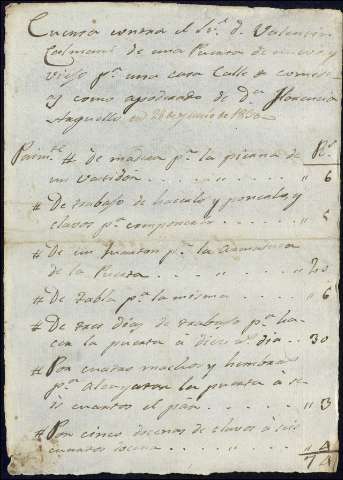 Cuenta contra el Sr. d. Valentin
de una Puerta de nuevo y
viejo pa. una casa Calle de comedi
as como apoderado de Da. Florencia
Arguello en 28 de junio de 1850
Primte. # De madera pa. la pierna de Rs.
un vatidor . . . . . . . " 6
# De trabajo de hacerlo y ponerlo, y
clavos pa. componer . . . . . . 5
# De un quarton pa. la armadura
de la Puerta . . . . . " . . . . . 20
# De tabla pa. la misma . . . . " 6
# De tres dias de trabajo pa. ha
cer la puerta á diez rs. dia . . 30
# Por cuatro machos y hembras
pa. la puerta á se
is cuartos el par . . . . . . " 3
# Por cinco docenas de clavos á seis
cuartos docena . . . . . . " 4
74